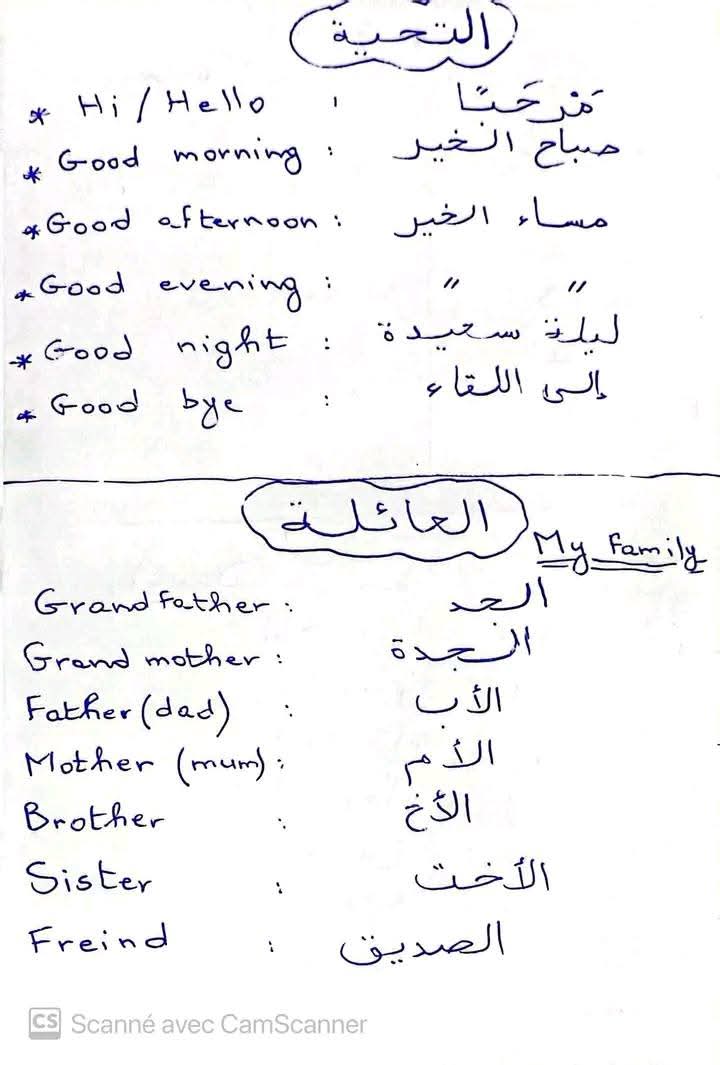 التحية
* Hi / Hello : مَرْحَبًا
* Good morning : صباح الخير
* Good afternoon : مساء الخير
* Good evening : " "
* Good night : ليلة سعيدة
* Good bye : إلى اللقاء
العائلة
My Family
Grand father : الجد
Grand mother : الجدة
Father (dad) : الأب
Mother (mum) : الأم
Brother : الأخ
Sister : الأخت
Freind : الصديق
CS Scanné avec CamScanner